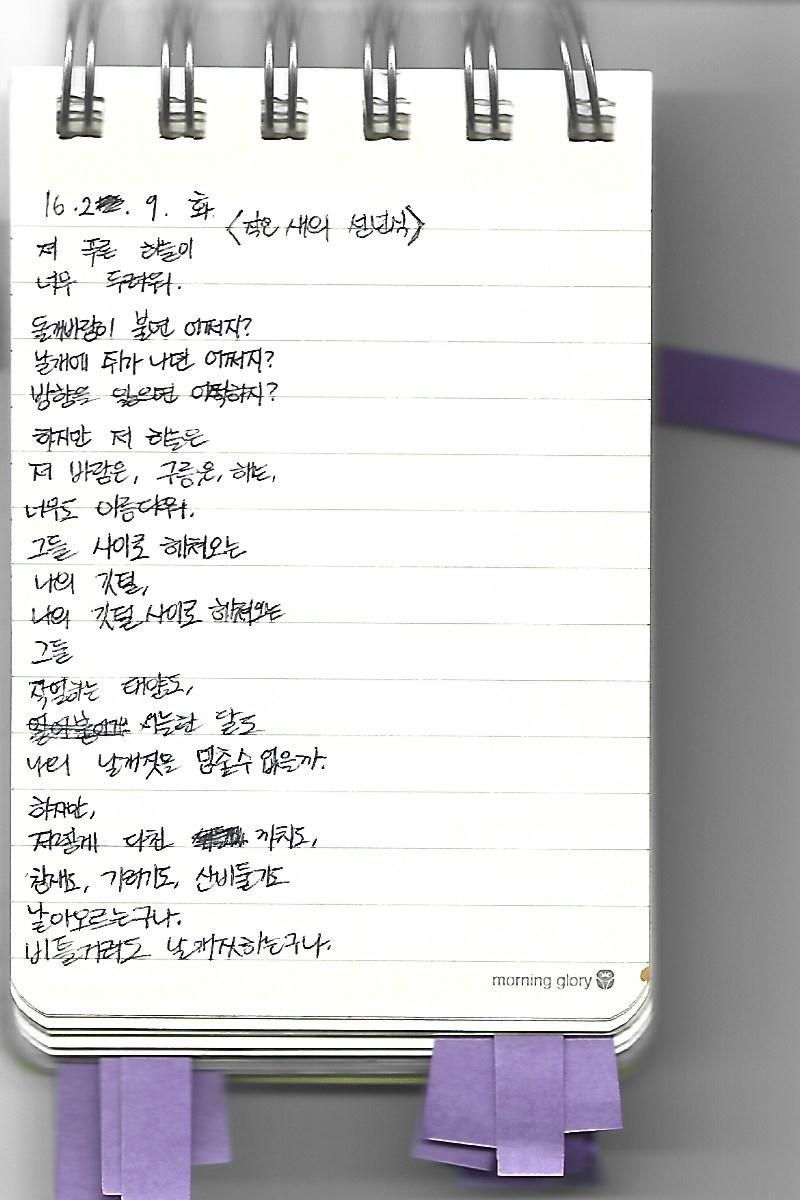 16.2. 9. 화
<작은 새의 선언식>
저 푸른 하늘이
너무 두려워.
돌개바람이 불면 어쩌지?
날개에 쥐가 나면 어쩌지?
방향을 잃으면 어떡하지?
하지만 저 하늘은
저 바람은, 구름은, 해는,
너무도 아름다워.
그들 사이로 헤쳐오는
나의 깃털,
나의 깃털 사이로 헤쳐오는
그들
작열하는 태양도,
서늘한 달도
나의 날개짓을 멈출 수 없을까.
하지만,
저렇게 다친 까치도,
참새도, 기러기도, 산비둘기도
날아오르는구나.
비틀거려도 날개짓하는구나.
morning glory